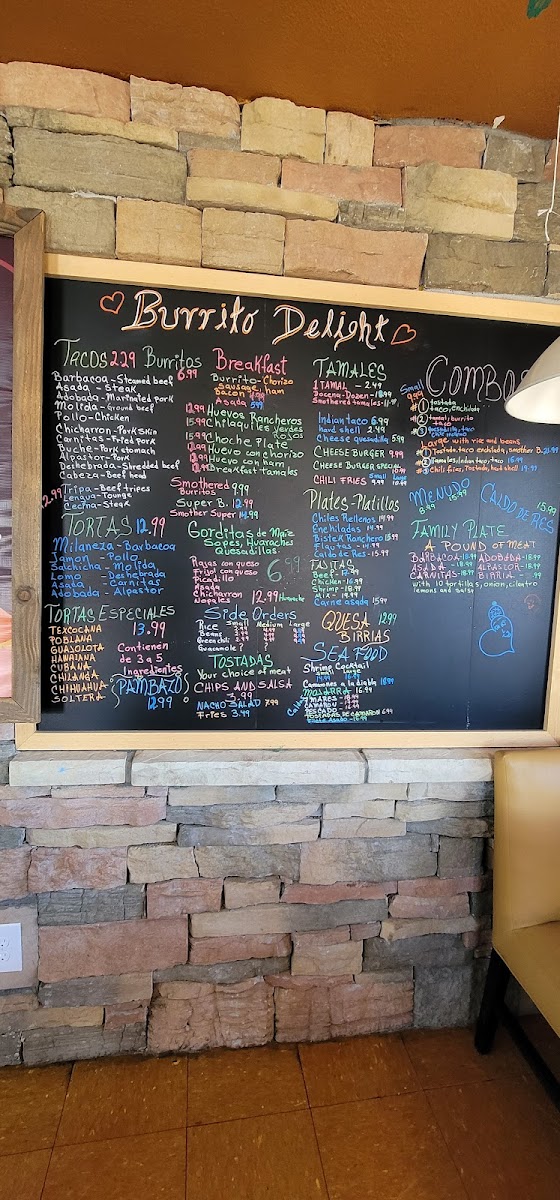 Burrito Delight
Tacos 2.29 Burritos
6.99
Barbacoa - Steamed beef
Asada - Steak
Adobada - Marinated pork
Molida - Ground beef
Pollo - Chicken
Chicharron - Pork skin
Carnitas - Fried pork
Buche - Pork stomach
Alpastor - Pork
Deshebrada - Shredded beef
Cabeza - Beef head
Tripa - Beef tripes
Lengua - Tounge
Cecina - Steak
TORTAS 12.99
Milaneza - Barbacoa
Jamon - Pollo
Salchicha - Molida
Lomo - Desherada
Asada - Carnitas
Adobada - Alpastor
TORTAS ESPECIALES
13.99
TEXCOCANA
POBLANA
GUASOLOTA
HAWAIANA
CUBANA
CHILANGA
CHIHUAHUA
SOLTERA
Contienen
de 3 a 5
Ingredientes
PAMBAZO
12.99
Breakfast
Burrito - Chorizo
Sausage, Ham
Bacon
Asada
12.99 Huevos Rancheros
15.99 Chilaquiles verdes
Rojos
Choche Plate
Huevo con chorizo
Huevo con ham
Breakfast tamales
Smothered 9.99
Burritos
Super B. 12.99
Smother Super
Gorditas de Maiz
Sopes, Huaraches
Quesadillas
6.99
Rajas con queso
Frijol con queso
Picadillo
Asada
Chicharron
Nopales
12.99 Huarache
Side Orders
Small Medium Large
Rice
Beans
Green chili
Guacamole
TOSTADAS
Your choice of meat
CHIPS AND SALSA
3.99
NACHO SALAD 7.99
Fries 3.99
TAMALES
1 TAMAL - 2.49
Docena - Dozen
Smothered tamales
Indian taco 6.99
hard shell 2.49
Cheese quesadilla 5.99
CHEESE BURGER 9.99
CHEESE BURGER SPECIAL
Small Large
CHILI FRIES
Plates - Platillos
Chiles Rellenos 14.99
Enchiladas 14.99
Bistek Ranchero
Flautas
Caldo de Res - 15.99
FAJITAS
Beef
Chicken - 16.99
Shrimp - 18.99
Mix - 19.99
Carne asada 15.99
QUESA 12.99
BIRRIAS
SEA FOOD
Shrimp Cocktail
Small Large
Camarones a la diabla 18.99
MOJARRA 16.99
7 MARES
CAMARON
PESCADO
TOSTADAS DE CAMARON 6.99
COMBOS
Small
9.99
#1 tostada
taco, enchilada
#2 tamal, burrito
taco
#3
Large with rice and beans
1 Tostada, taco enchilada, another B.
2 Tamales, indian taco, taco 16.99
3 Chili fries, Tostada, hard shell
MENUDO
CALDO DE RES
15.99
FAMILY PLATE
A POUND OF MEAT
BARBACOA ADOBADA
ASADA ALPASTOR - 18.99
CARNITAS BIRRIA
with 10 tortillas, onion, cilantro
lemons and salsa